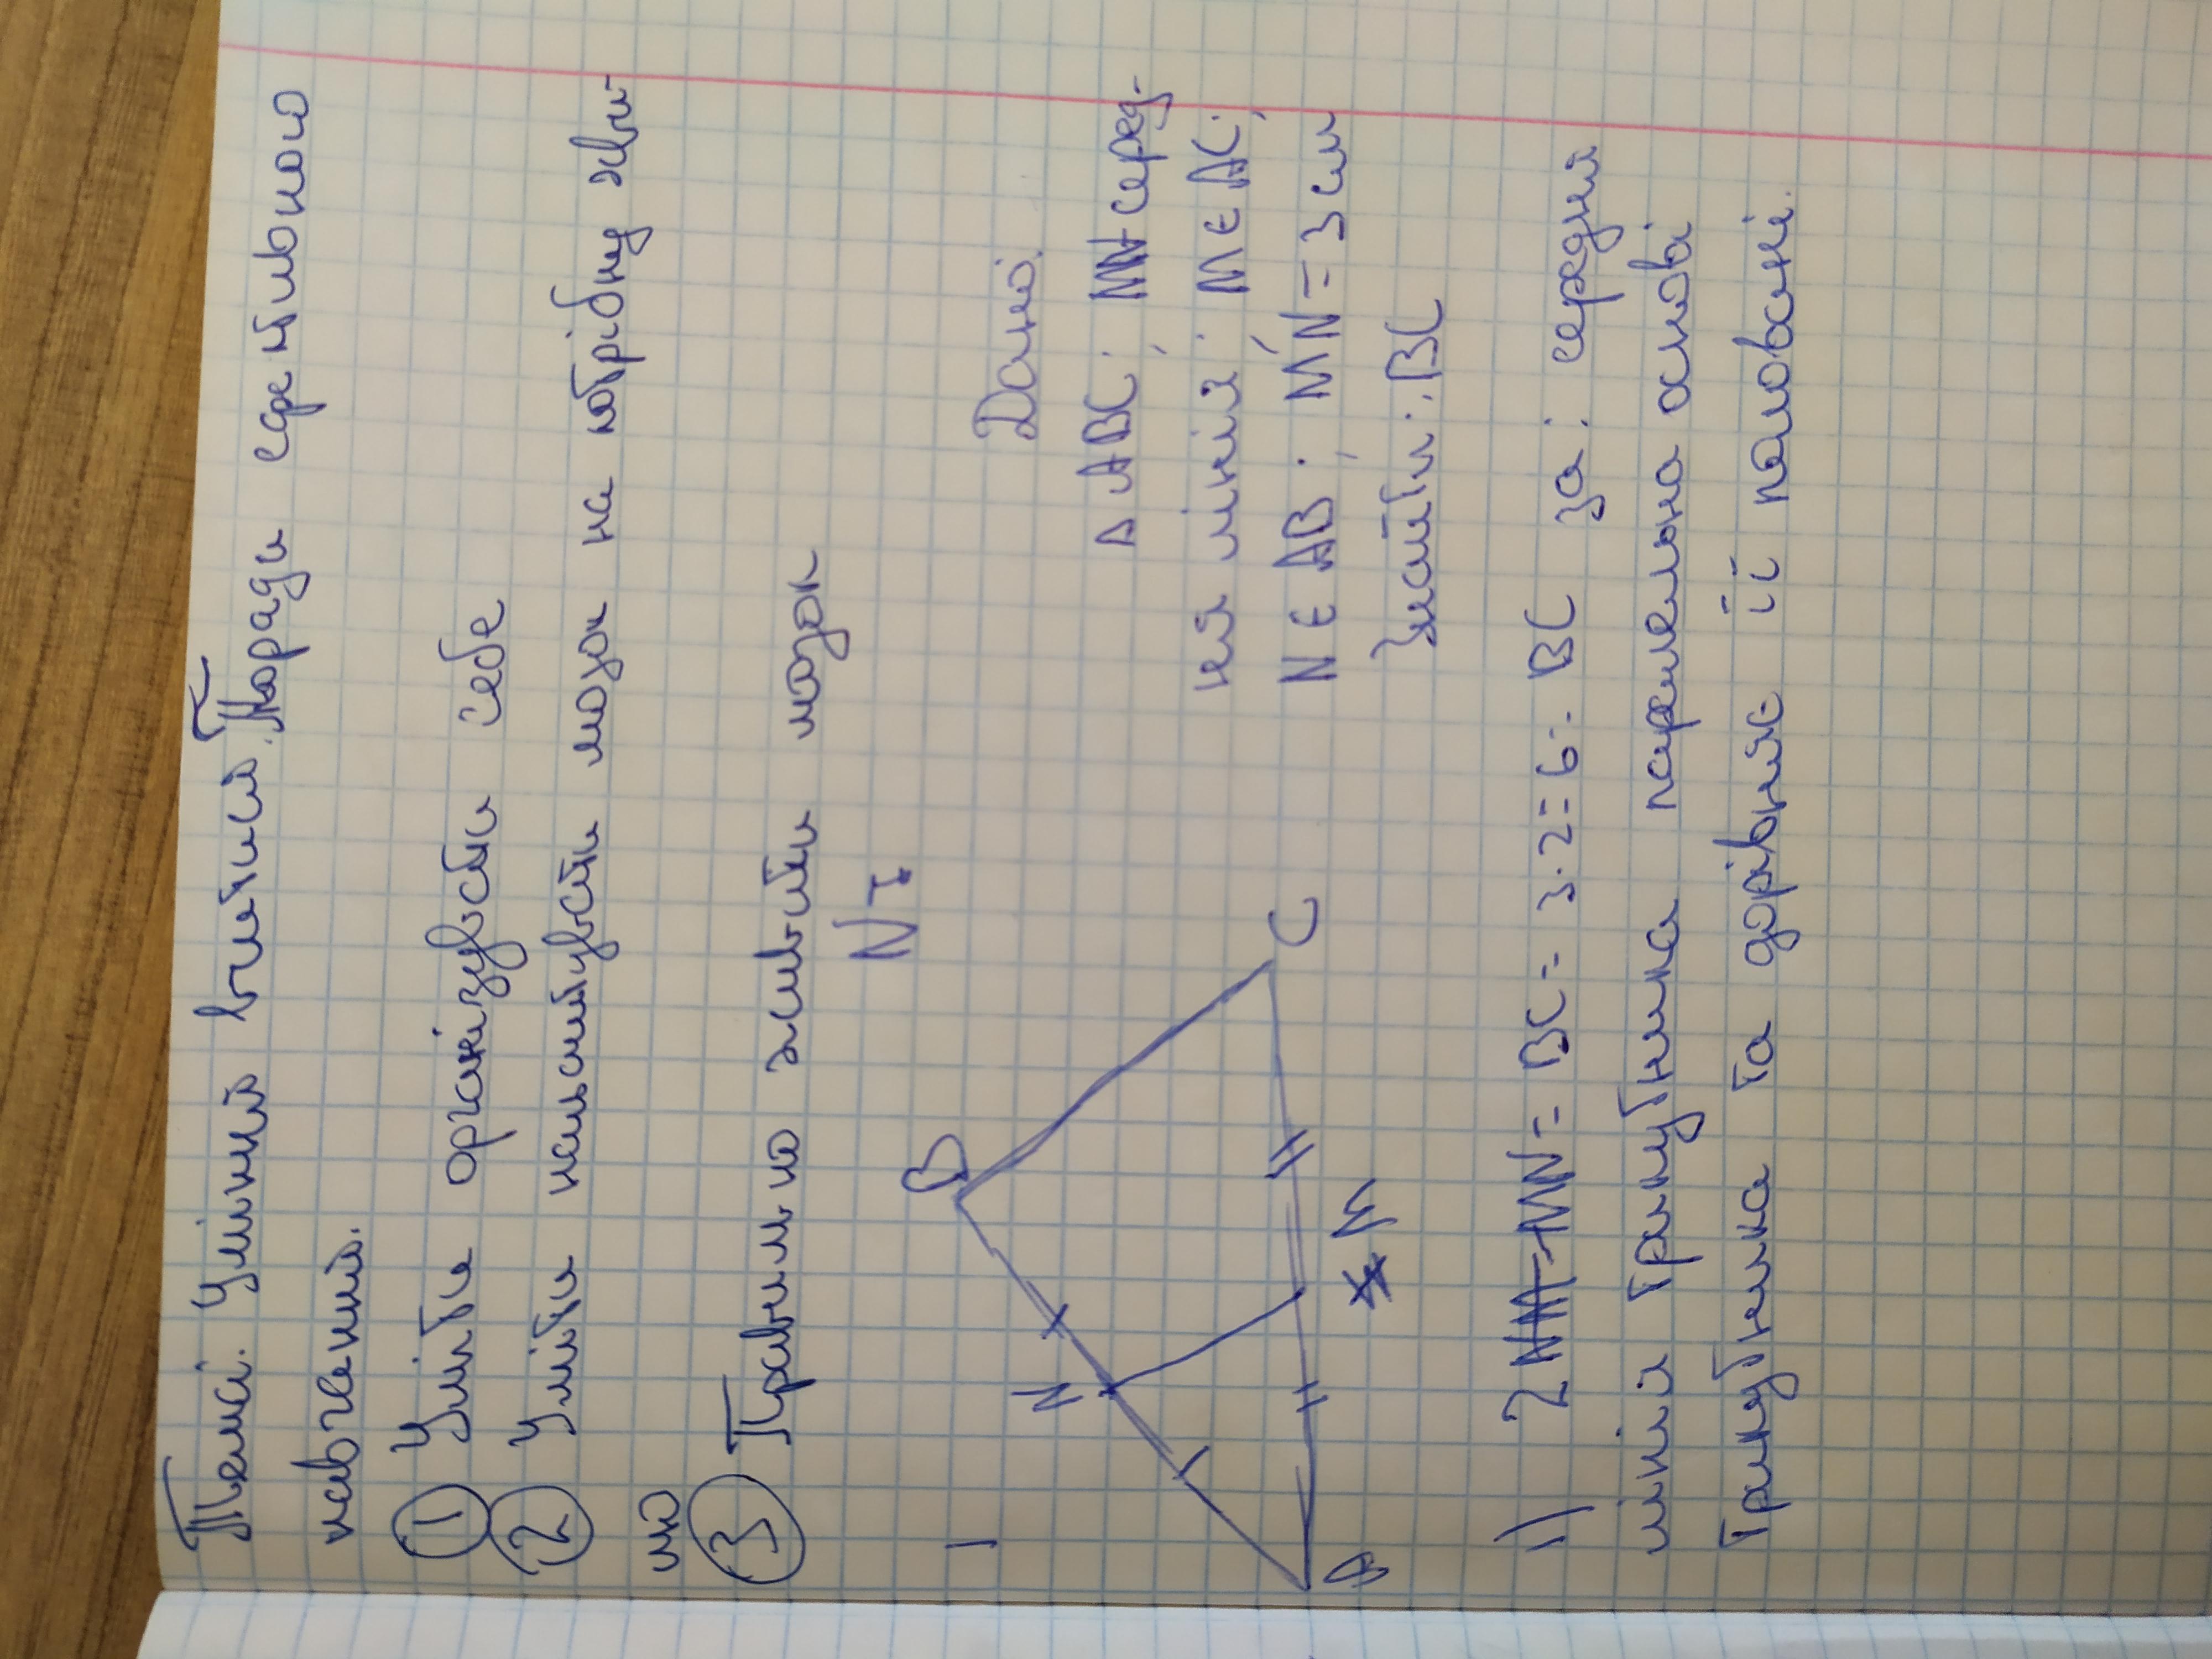 Темі. Умінні вчитися. Поради ефективного
навчення.
① Уміти організувати себе
② Уміти налаштувати мозок на потрібну хви-
лю
③ Правильно живити мозок
N I
1
B
N
A
M
C
Дано:
Δ ABC; MN серед-
ня лінія; M ∈ AC;
N ∈ AB; MN = 3 см
Знайти: BC
1) 2 MN = BC = 3·2 = 6 - BC за: середня
лінія трикутника паралельна основі
трикутника та дорівнює її половині.